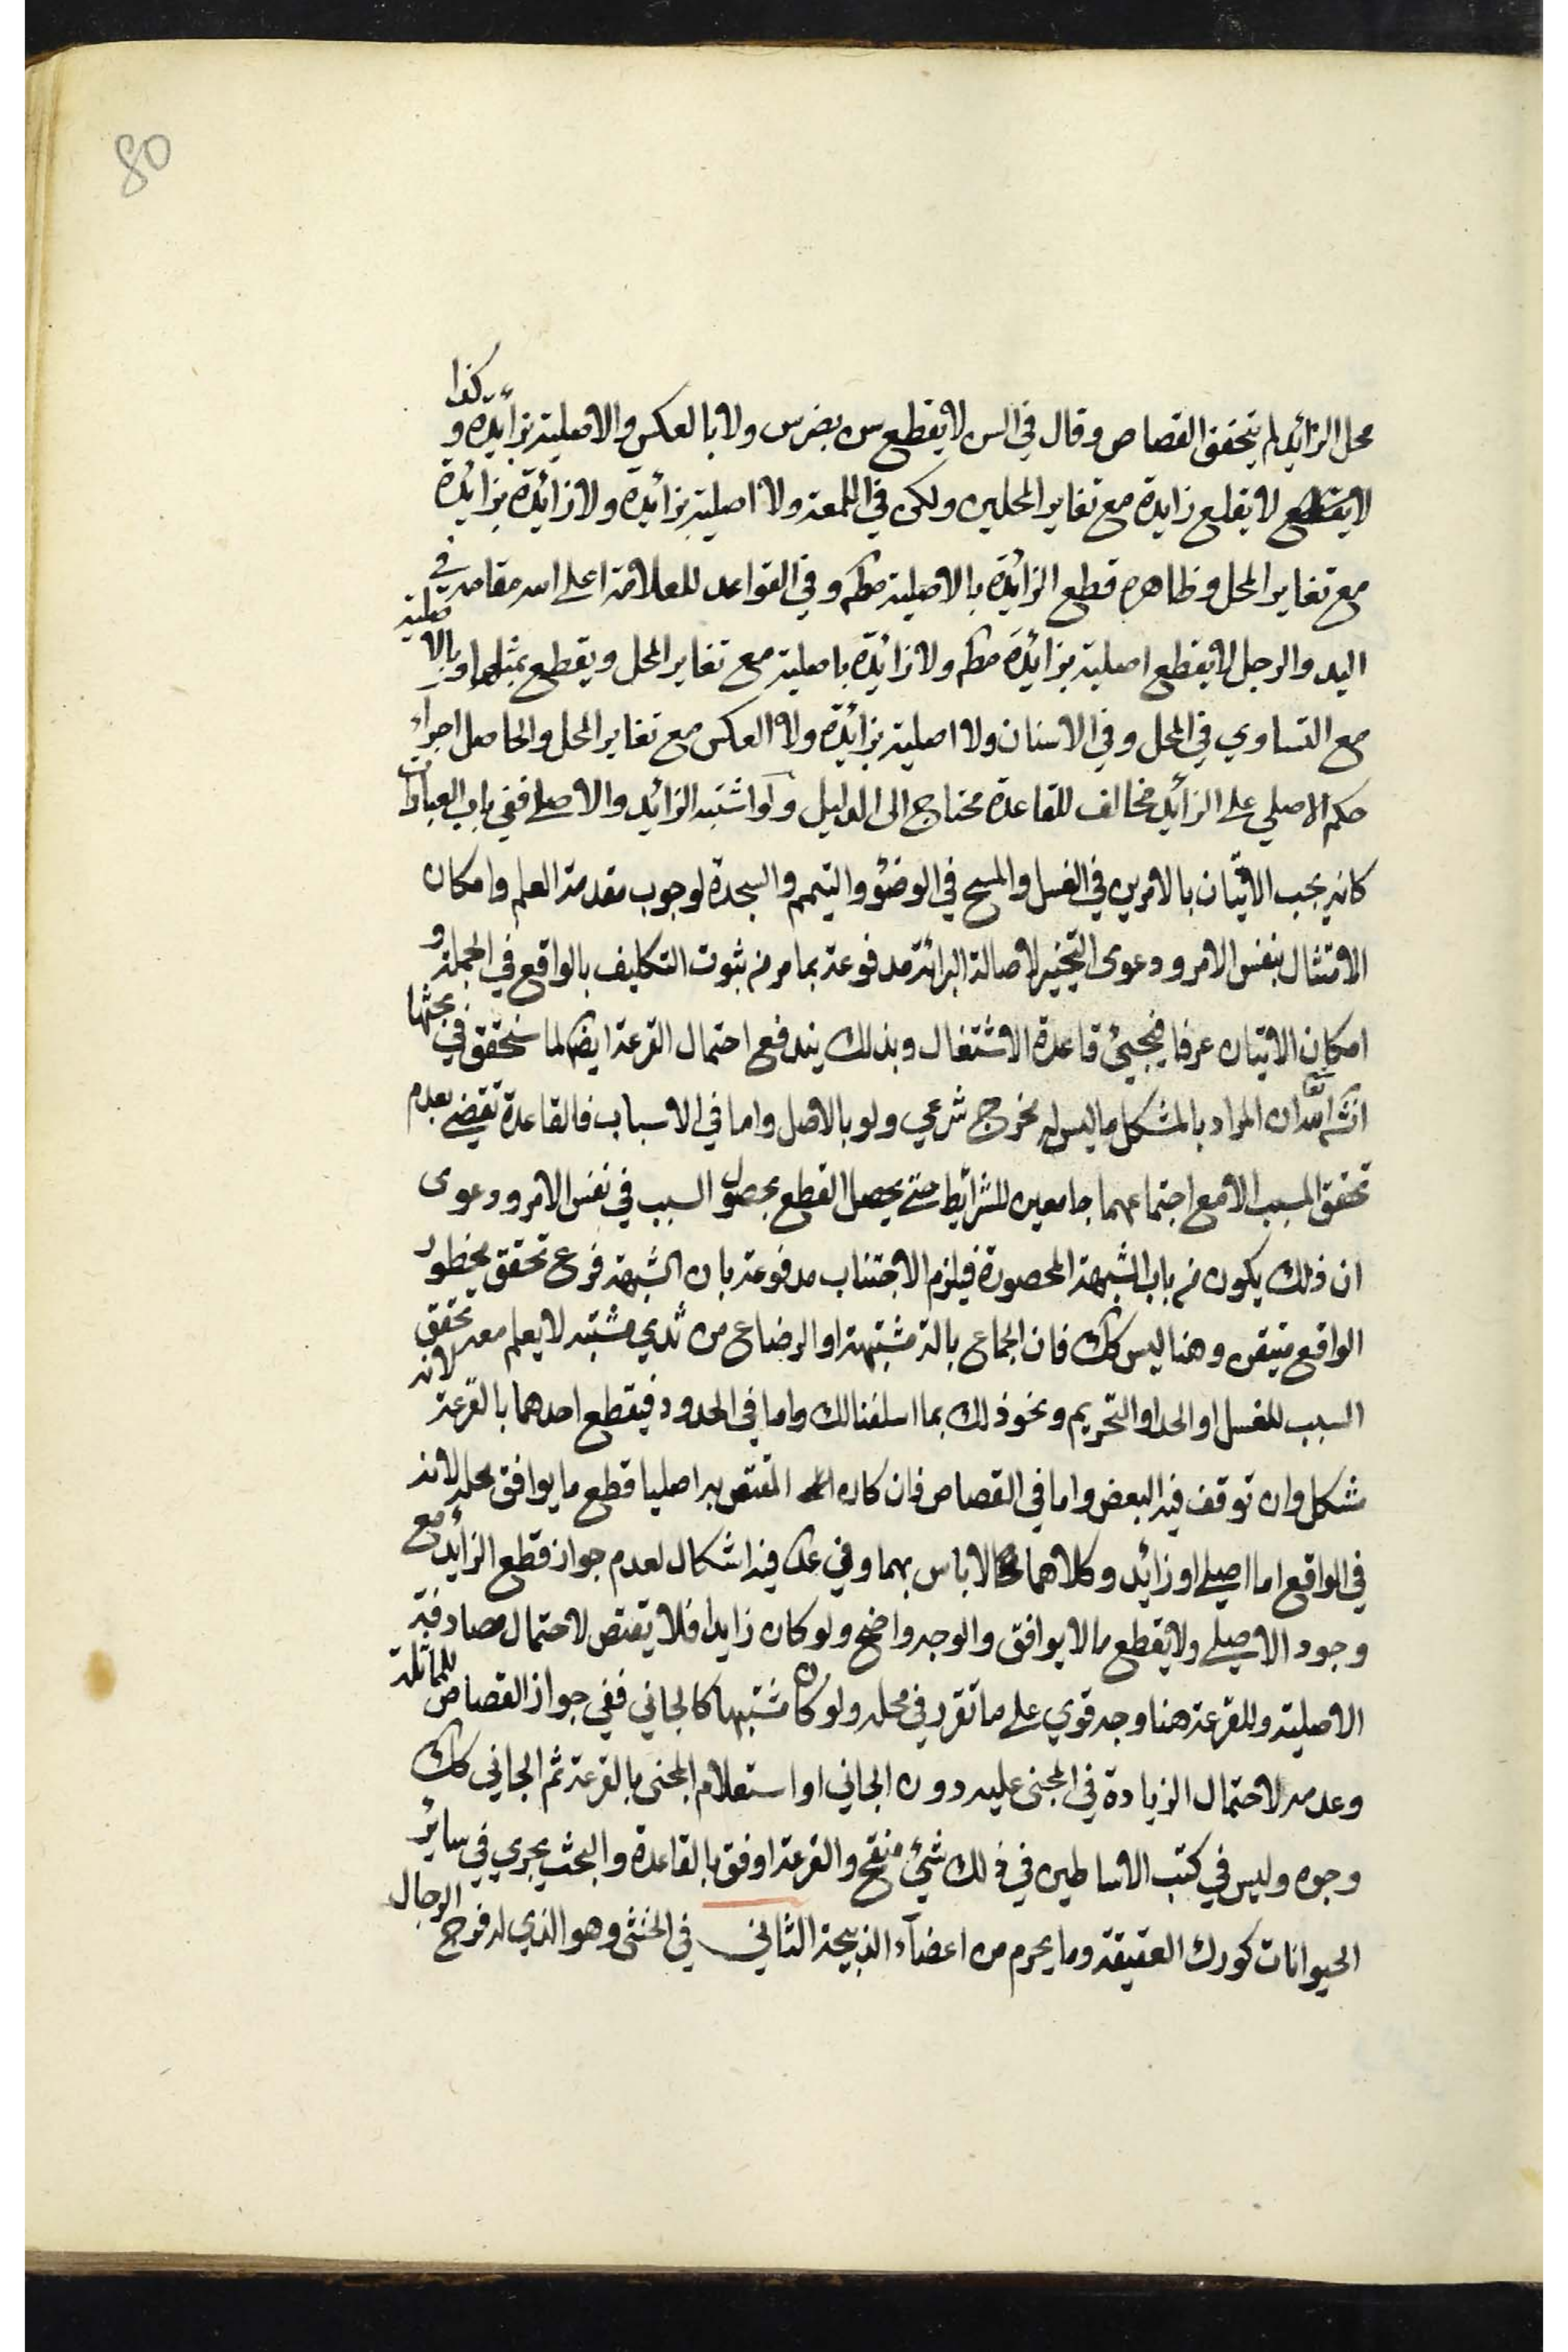 80
محل الزائد لم يتحقق القصاص وقال في السن لا يقطع سن بضرس ولا بالعكس والاصلية بزائدة وكذا
لا يقلع زايدة مع تغاير المحلين ولكن في اللمعة ولا اصلية بزائدة ولا زائدة بزائدة
مع تغاير المحل وظاهره قطع الزائدة بالاصلية مطم وفي القواعد للعلامة اعلى الله مقامه في
اليد والرجل لا يقطع اصلية بزائدة مطم ولا زائدة باصلية مع تغاير المحل ويقطع بمثلها وبالاصلية
مع التساوي في المحل وفي الاسنان ولا اصلية بزائدة ولا العكس مع تغاير المحل والحاصل اجراء
حكم الاصلي على الزائد مخالف للقاعدة محتاج الى الدليل ولو اشتبه الزائد والاصلي ففي باب العبادات
كانه يجب الاتيان بالامرين في الغسل والمسح في الوضوء والتيمم والسجدة لوجوب مقدمة العلم وامكان
الامتثال بنفس الامر ودعوى التخيير لاصالة البرائة مدفوعة بما مر من ثبوت التكليف بالواقع في الجملة و
امكان الاتيان عرفا فيجيئ قاعدة الاشتغال وبذلك يندفع احتمال القرعة ايضا لما سنحقق في بحثها
انشاء الله تعا ان المراد بالمشكل ما ليس له مخرج شرعي ولو بالاصل واما في الاسباب فالقاعدة تقضي بعدم
تحقق المسبب الا مع اجتماعهما جامعين للشرائط حتى يحصل القطع بحصول السبب في نفس الامر ودعوى
ان ذلك يكون من باب الشبهة المحصورة فيلزم الاجتناب مدفوعة بان الشبهة فرع تحقق محظور
الواقع متيقن وهنا ليس كك فان الجماع بالة مشتبهة او الرضاع من ثدي مشتبه لا يعلم معه تحقق
السبب للغسل او الحد او التحريم ونحو ذلك بما اسلفنا لك واما في الحدود فيقطع احدهما بالقرعة لانه
مشكل وان توقف فيه البعض واما في القصاص فان كان المقتص به اصليا قطع ما يوافق محله لانه
في الواقع اما اصلي او زائد وكلاهما لا باس بهما وفي عد فيه اشكال لعدم جواز قطع الزايد مع
وجود الاصلي ولا يقطع ما لا يوافق والوجه واضح ولو كان زايدا فلا يقتص لاحتمال مصادفة
الاصلية وللقرعة هنا وجه قوي على ما تقرر في محله ولو كان مشتبها كالجاني ففي جواز القصاص للمماثلة
وعدمه لاحتمال الزيادة في المجنى عليه دون الجاني او استعلام المجنى بالقرعة ثم الجاني كك
وجوه وليس في كتب الاساطين في ذلك شيئ منقح والقرعة اوفق بالقاعدة والبحث يجري في سائر
الحيوانات كورك العقيقة وما يحرم من اعضاء الذبيحة الثاني في الخنثى وهو الذي له فرج الرجال